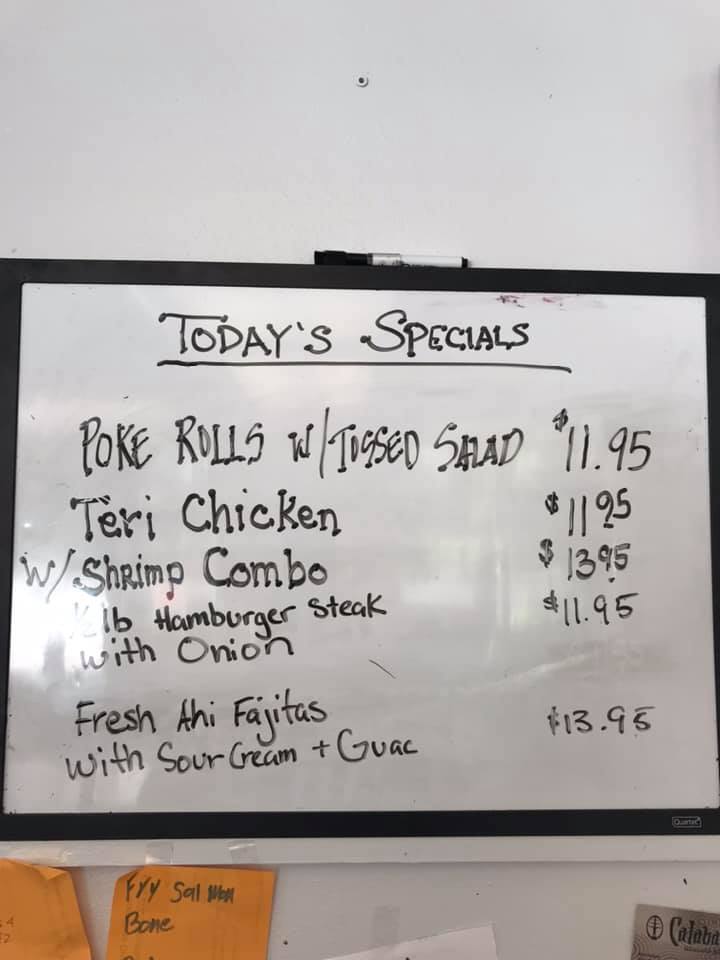 TODAY'S SPECIALS
POKE ROLLS W/TOSSED SALAD $11.95
Teri Chicken $1195
W/ SHRimp Combo $1395
1/2 lb Hamburger Steak $11.95
with Onion
Fresh Ahi Fajitas $13.95
with Sour Cream + Guac
Quartet
Fry Salmon
Bone